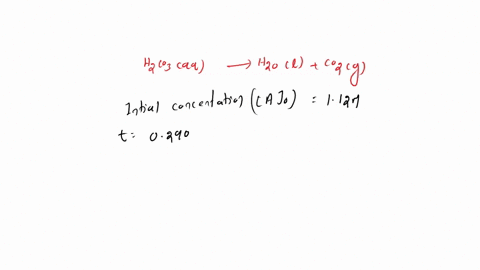 H2CO3 (aq) → H2O (l) + CO2 (g)
Intial concentation ([A]0) = 1.12M
t = 0.290